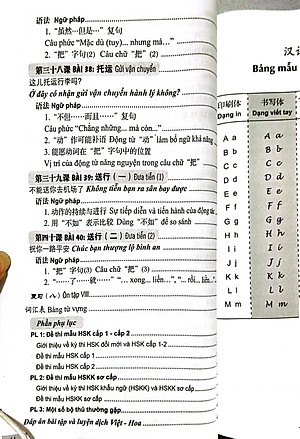 语法 Ngữ pháp
1. “虽然…但是…” 复句
Câu phức “Mặc dù (tuy)... nhưng mà...”
2. “把” 字句(2) Câu chữ “把” (2)
第三十八课 BÀI 38: 托运 Gửi vận chuyển
这儿托运行李吗?
Ở đây có nhận gửi vận chuyển hành lý không?
语法 Ngữ pháp
1. “不但……而且……” 复句
Câu phức “Chẳng những... mà còn...”
2. “动” 作可能补语 Động từ “动” làm bổ ngữ khả năng
3. 能愿动词在 “把” 字句中的位置
Vị trí của động từ năng nguyện trong câu “把”
第三十九课 BÀI 39: 送行 (一) Đưa tiễn (1)
不能送你去机场了 Không tiễn bạn ra sân bay được
语法 Ngữ pháp
1. 动作的持续与进行 Sự tiếp diễn và tiến hành của động tác
2. 用 “不如” 表示比较 Dùng “不如” để so sánh
第四十课 BÀI 40: 送行 (二) Đưa tiễn (2)
祝你一路平安 Chúc bạn thượng lộ bình an
语法 Ngữ pháp
1. “把” 字句(3) Câu chữ “把” (3)
2. “……了……就……” “... xong, liền...”, “... rồi.. liền..”
复习 (八) Ôn tập VIII
词汇表 Bảng từ vựng
Phần phụ lục
PL 1: Đề thi mẫu HSK cấp 1 - cấp 2
Giới thiệu về kỳ thi HSK đổi mới và HSK cấp 1-2
Đề thi mẫu HSK cấp 1
Đề thi mẫu HSK cấp 2
PL 2: Đề thi mẫu HSKK sơ cấp
Giới thiệu về kỳ thi HSK khẩu ngữ (HSKK) và HSKK sơ cấp
Đề thi mẫu HSKK sơ cấp
PL 3: Một số bộ thủ thường gặp
Đáp án bài tập và luyện dịch Việt - Hoa
汉语
Bảng mẫu
印刷体 书写体
Dạng in Dạng viết tay
A a A a
B b B b
C c C c
D d D d
E e E e
F f F f
G g G g
H h H h
I i I i
J j J j
K k K k
L l L l
M m M m